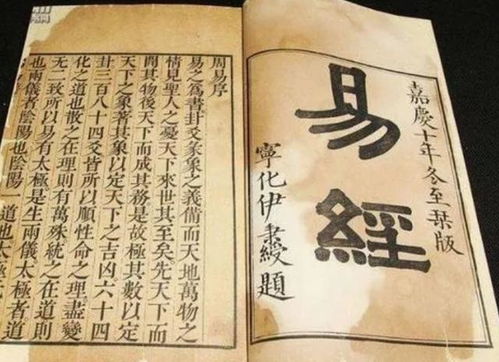 嘉慶十年冬至栞版
易經
寧化伊秉綬題
周易序
易之為書卦爻彖象之義備而天地萬物之
情見聖人之憂天下來世其至矣先天下而
開其物後天下而成其務是故極其數以定
天下之象著其象以定天下之吉凶六十四
卦三百八十四爻皆所以順性命之理盡變
化之道也散之在理則有萬殊統之在道則
无二致所以易有太極是生兩儀太極者道
也兩儀者陰陽也陰陽 道也太極无